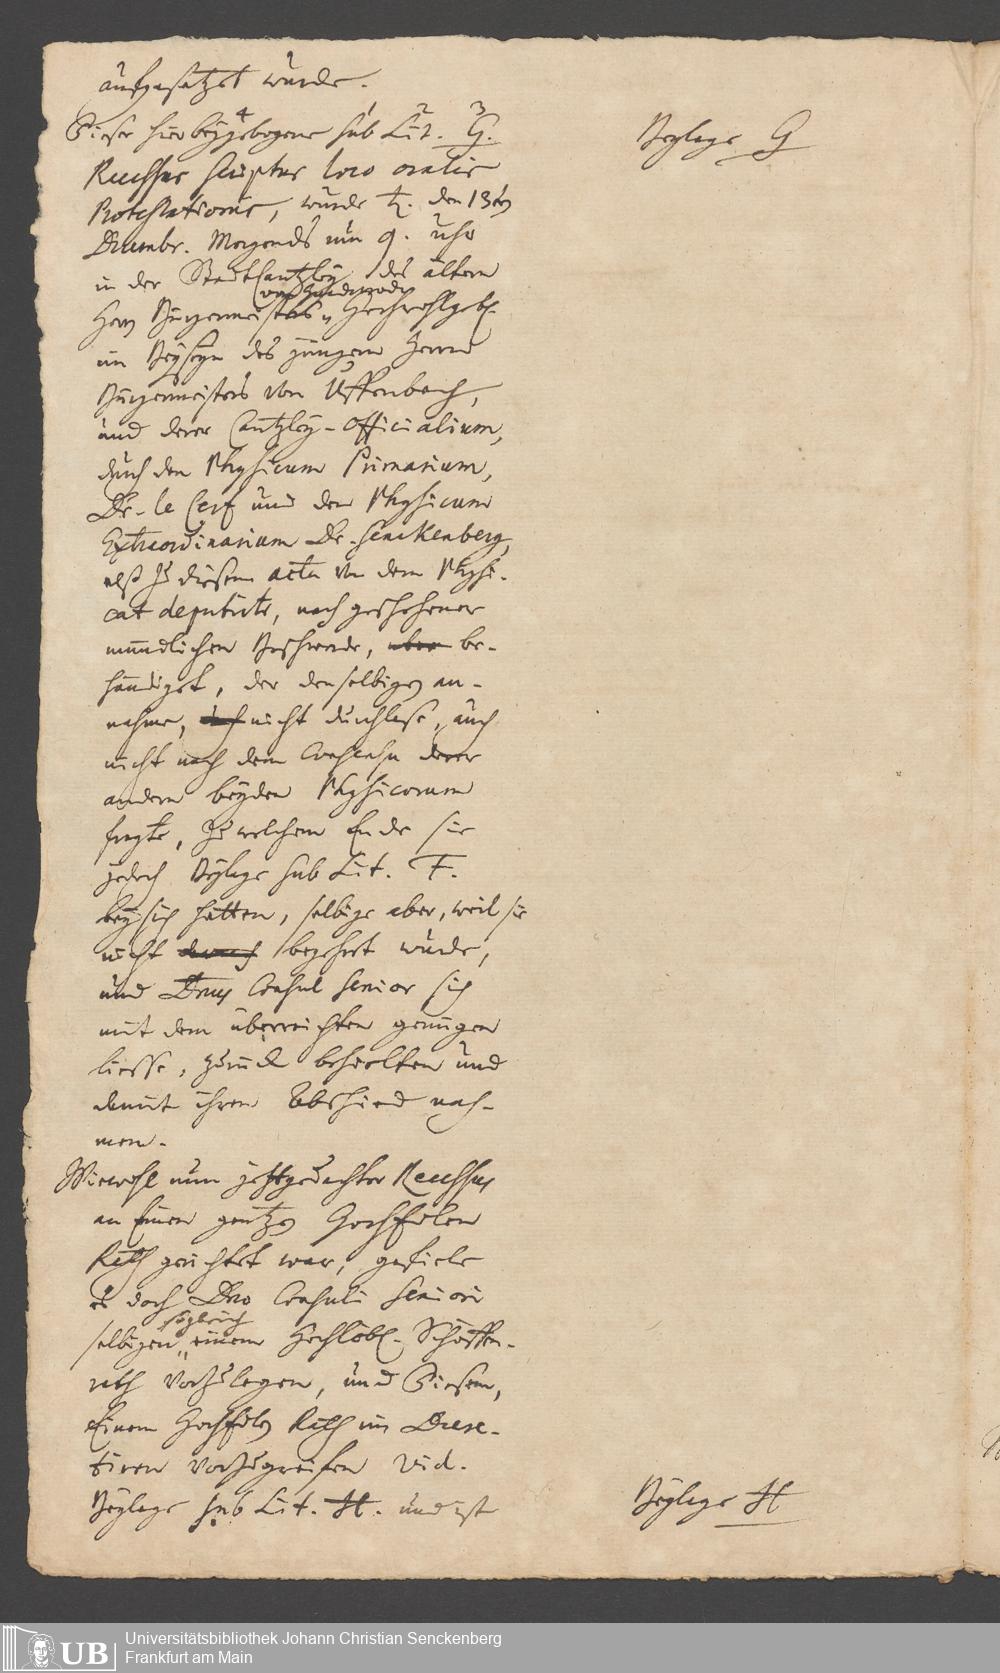 aufgesetzt wurde.
Dieser hier beygebogene sub Lit. G.
4 1 2 3
Beylage G
Recessus scriptus loco oralis
Protestationis, wurde den 13ten
Decembr. Morgends um 9. Uhr
in der Stadt Cantzley des ältern
Herrn Burgermeisters Hochwohlgeb.
im Beyseyn des jüngern Herrn
Burgermeisters von Uffenbach,
und derer Cantzley-Officialium,
durch den Physicum Primarium,
Dr. le Cerf und den Physicum
Extraordinarium Dr. Senckenberg,
alß zu diesem actu von dem Physi-
cat deputirte, nach geschehener
mündlichen Beschwerde, be-
händiget, der denselbigen an-
nahme, nicht durchlase, auch
nicht nach dem Consensu derer
andern beyden Physicorum
fragte, zu welchem Ende sie
jedoch Beylage sub Lit. F.
bey sich hatten, selbige aber, weil sie
nicht begehrt wurde,
und Dnus Consul Senior sich
mit dem überreichten genügen
liesse, zurück behielten und
damit ihren Abschied nah-
men.
Wiewohl nun jetztgedachter Recessus
an Einen gantzen Hochedlen
Rath gerichtet war, gefiele
es doch Dno Consuli Seniori
sogleich
selbigen einem Hochlöbl. Schöffen-
rath vorzulegen, und Diesem,
Einem Hochedlen Rath im Decre-
tiren vorzugreifen vid.
Beylage sub Lit. H. und ist
Beylage H
UB
Universitätsbibliothek Johann Christian Senckenberg
Frankfurt am Main